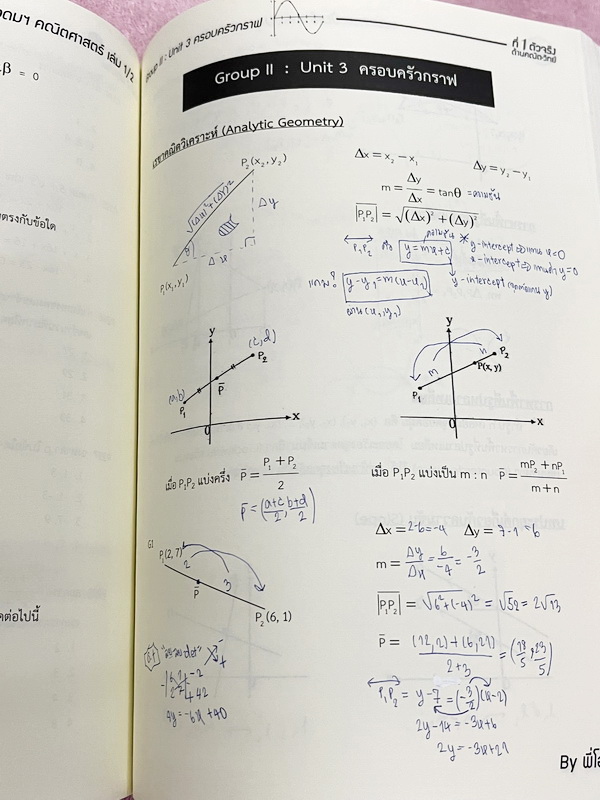 อดมฯ คณิตศาสตร์ เล่ม 1/2
β = 0
ตรงกับข้อใด
คต่อไปนี้
Group II : Unit 3 ครอบครัวกราฟ
ที่ 1 ตัวจริง
ด้านคณิต-วิทย์
Group II : Unit 3 ครอบครัวกราฟ
เรขาคณิตวิเคราะห์ (Analytic Geometry)
P₂(x₂, y₂)
√(Δx)²+(Δy)²
Δy
θ
Δx
P₁(x₁, y₁)
Δx = x₂ − x₁ Δy = y₂ − y₁
m = Δy/Δx = tanθ = ความชัน
|P₁P₂| = √(Δx)² + (Δy)²
ความชัน
P₁P₂ คือ y = mx+c
* y-intercept ⇒ แทน x=0
x-intercept ⇒ แทนค่า y=0
y-intercept (จุดตัดแกน y)
y-y₁ = m(x-x₁)
ผ่าน (x₁, y₁)
y
(c,d)
P₂
(a,b)
P₁
P̄
0
x
y
m
n
P₂
P(x, y)
P₁
0
x
เมื่อ P₁P₂ แบ่งครึ่ง P̄ = (P₁ + P₂)/2
P̄ = (a+c/2, b+d/2)
เมื่อ P₁P₂ แบ่งเป็น m : n P̄ = (mP₂ + nP₁)/(m + n)
P₁(2, 7)
2
3
P̄
P₂(6, 1)
Δx = 2-6 = -4 Δy = 7-1 = 6
m = Δy/Δx = 6/-4 = -3/2
|P₁P₂| = √6²+(-4)² = √52 = 2√13
P̄ = ((12,2)+(6,21))/(2+3) = (18/5, 23/5)
P₁P₂ = y-7 = (-3/2)(x-2)
2y-14 = -3x+6
2y = -3x+27
4y = -6x+40
By พี่โ